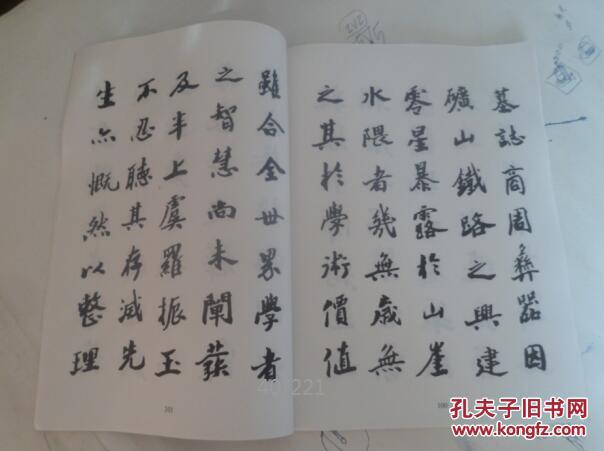 墓誌商周彝器因
礦山鐵路之興建
零星暴露於山崖
水隈者幾無歲無
之其於學術價值
100
雖合全世界學者
之智慧尚未闡發
及半上虞羅振玉
不忍聽其存滅先
生亦慨然以整理
101
40 221
孔夫子旧书网
www.kongfz.com